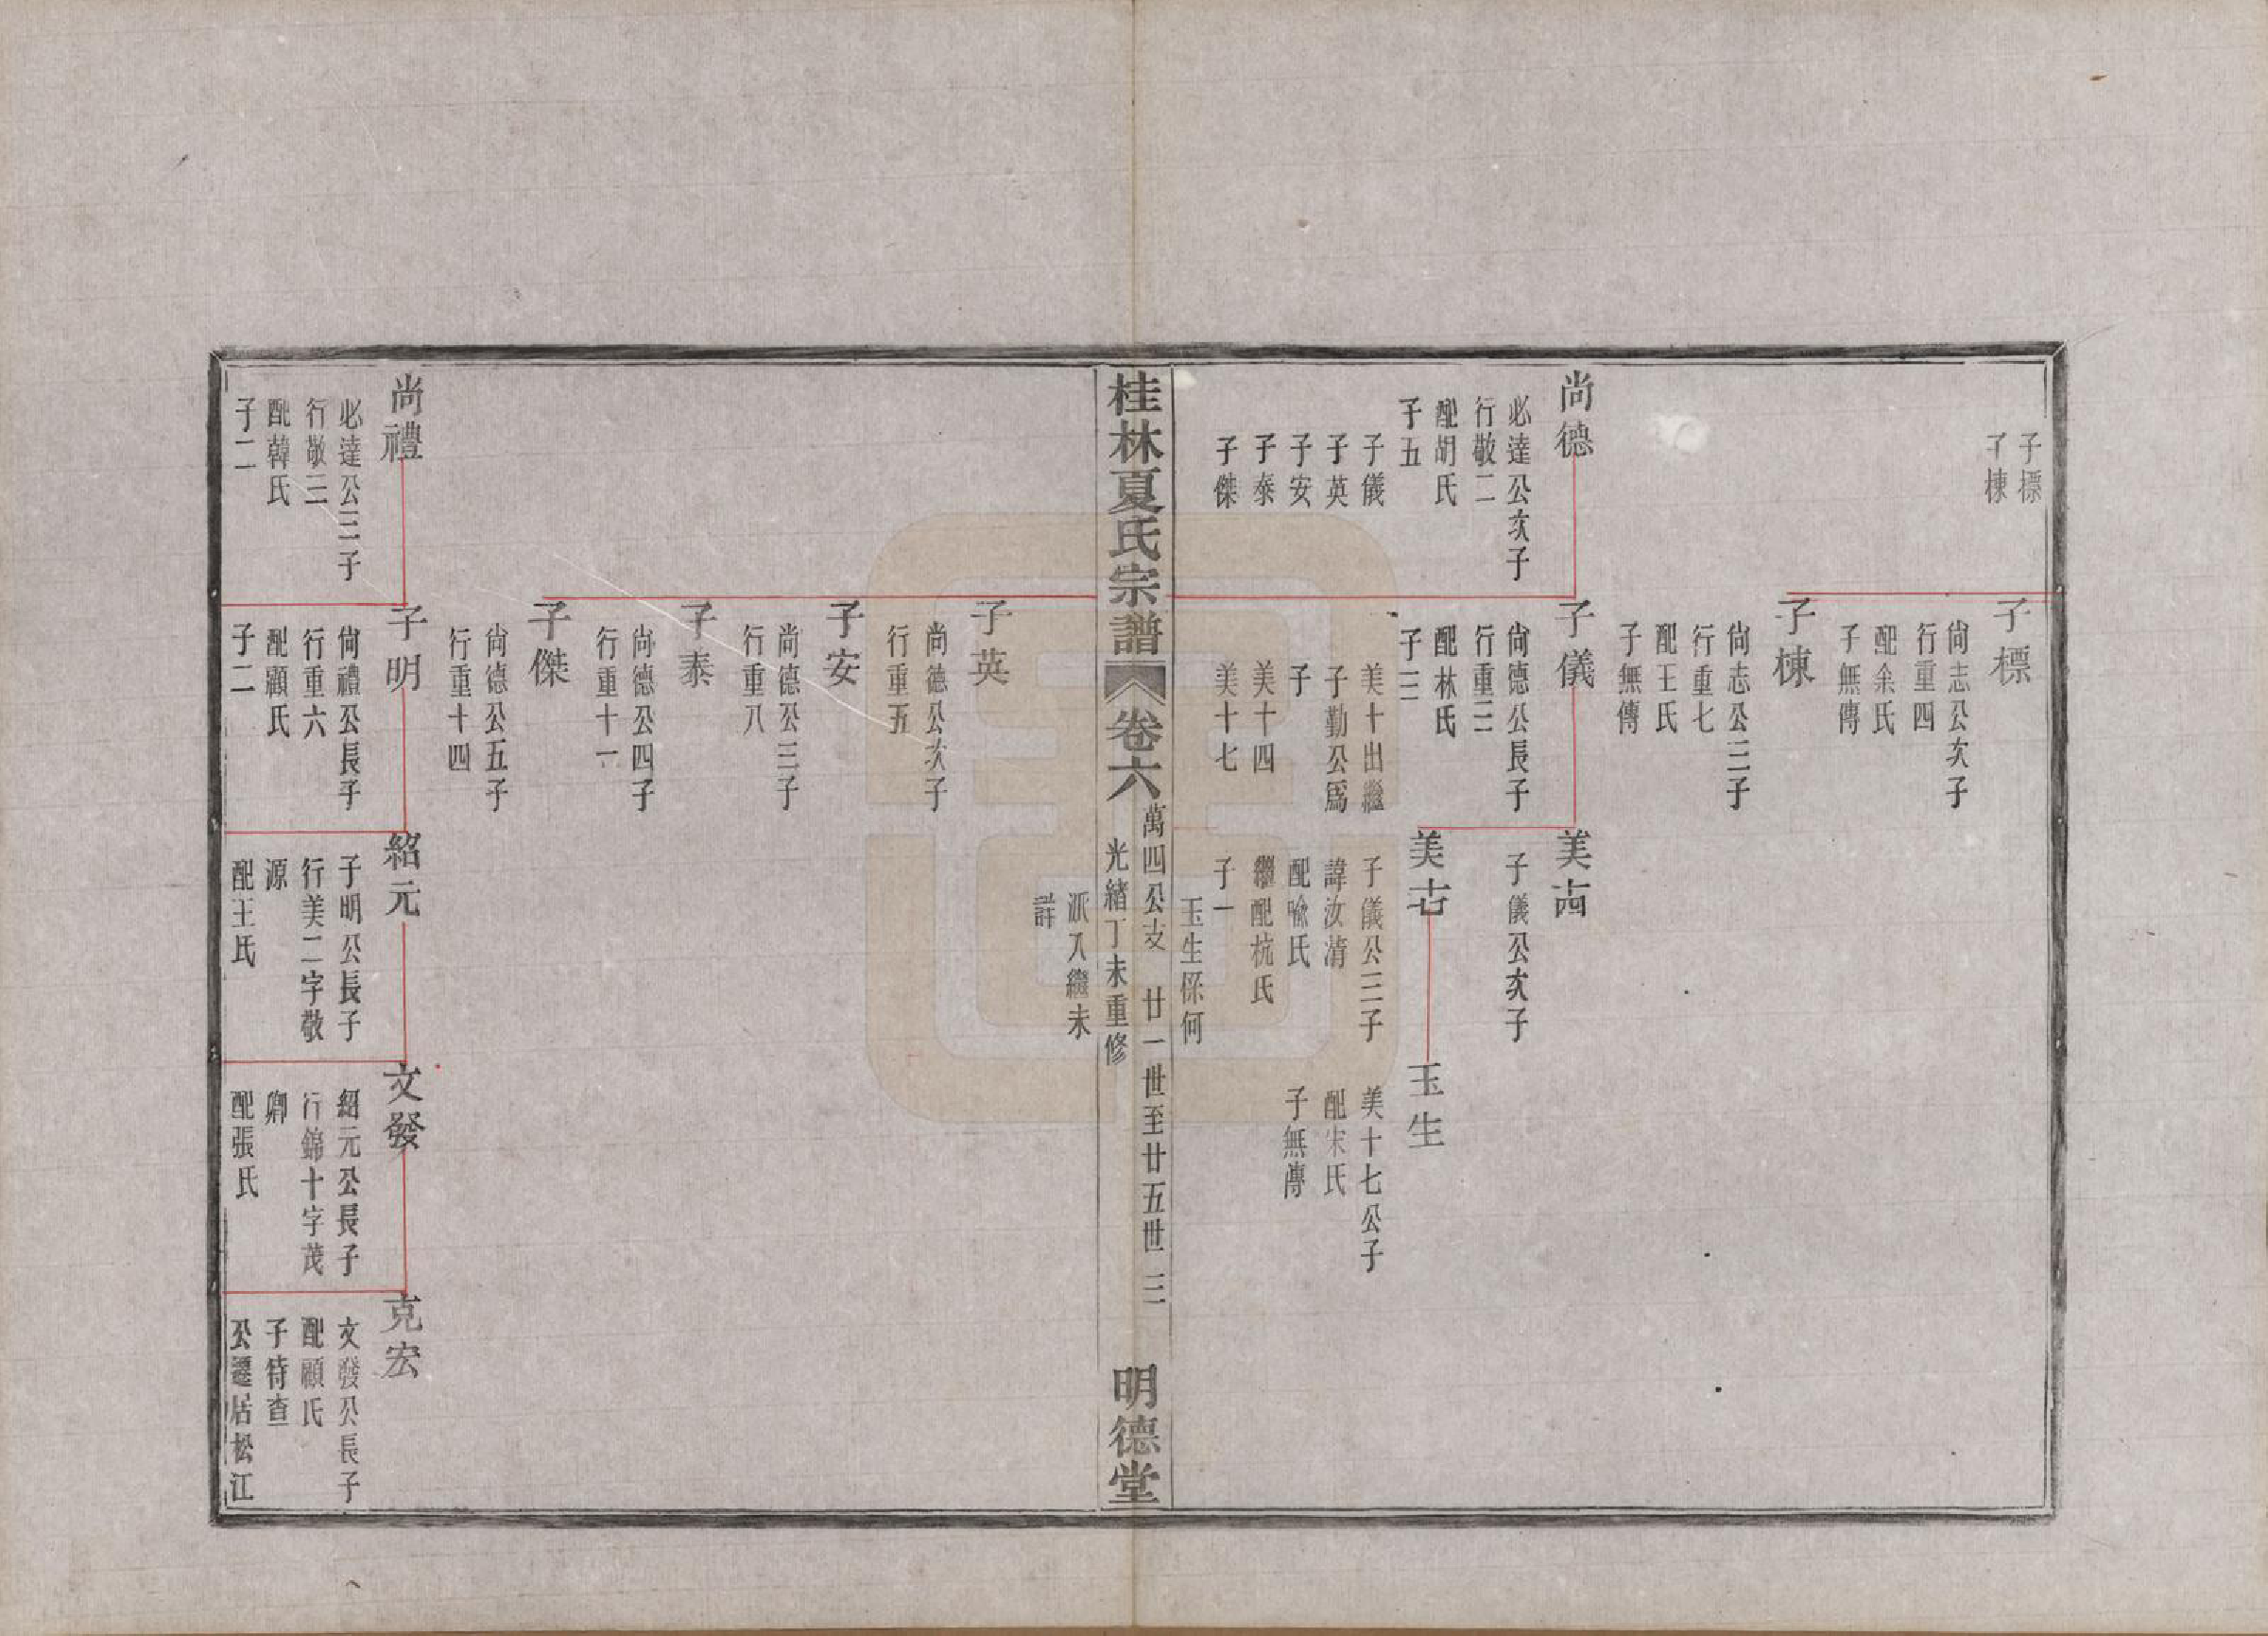 子標
子棟
子標
尙志公次子
行重四
配余氏
子無傳
子棟
尙志公三子
行重七
配王氏
子無傳
尚德
必達公次子
行敬二
配胡氏
子五
子儀
子英
子安
子泰
子傑
子儀
尙德公長子
行重三
配林氏
子三
美十出繼
子勤公爲
子
美十四
美十七
美十四
子儀公次子
美十七
子儀公三子
諱汝清
配喻氏
繼配杭氏
子一
玉生係何
派入繼未
詳
玉生
美十七公子
配宋氏
子無傳
桂林夏氏宗譜
卷六
萬四公支 廿一世至廿五世 三
光緒丁未重修
明德堂
子英
尚德公次子
行重五
子安
尚德公三子
行重八
子泰
尚德公四子
行重十一
子傑
尚德公五子
行重十四
尚禮
必達公三子
行敬三
配韓氏
子二
子明
尙禮公長子
行重六
配顧氏
子二
紹元
子明公長子
行美二字敬
源
配王氏
文發
紹元公長子
行錦十字茂
卿
配張氏
克宏
文發公長子
配顧氏
子待查
公遷居松江